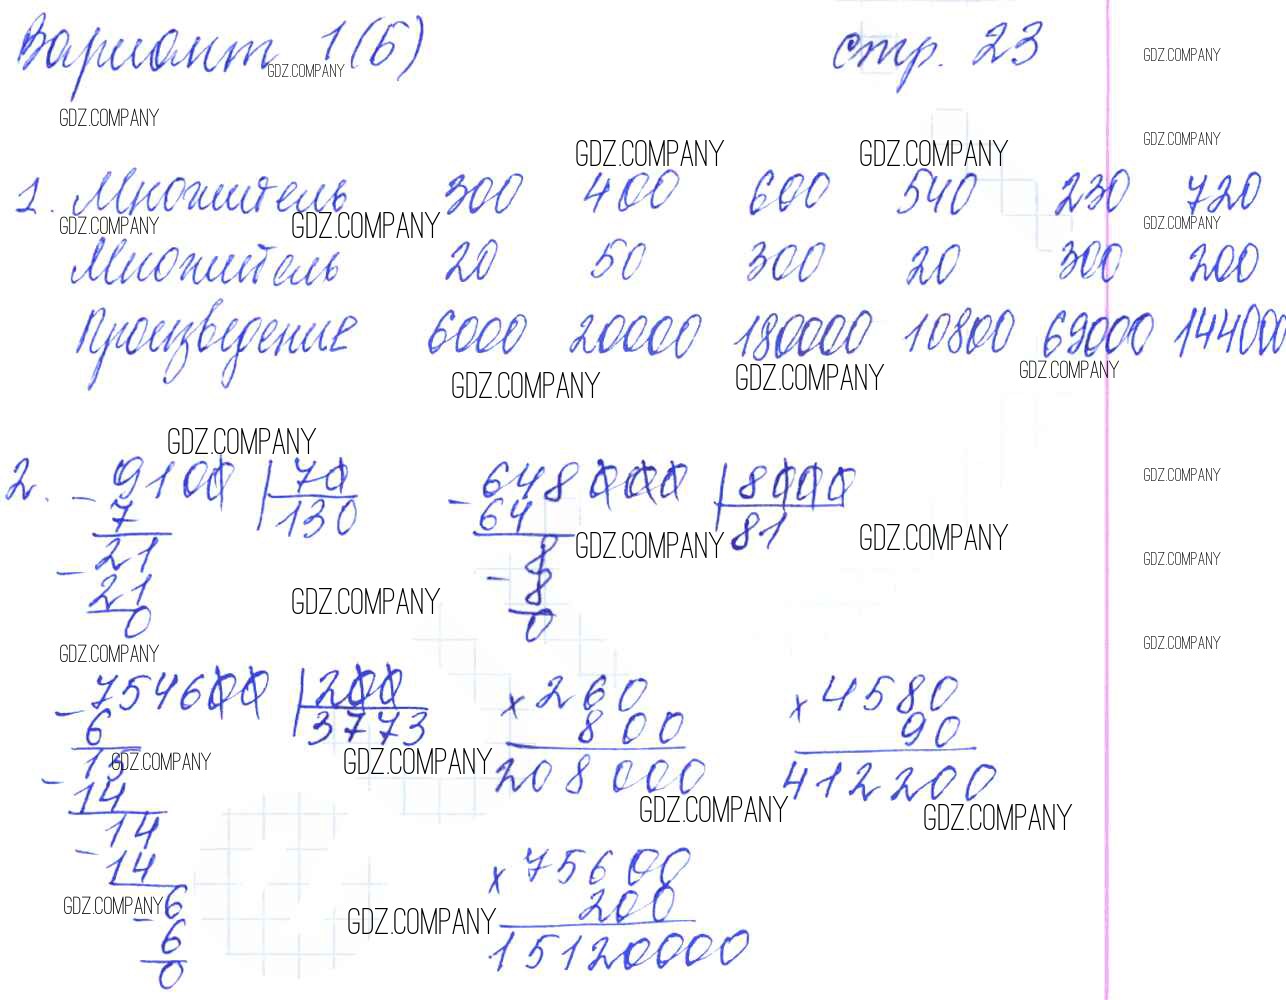 Вариант 1(б) стр. 23
GDZ.COMPANY GDZ.COMPANY
GDZ.COMPANY
GDZ.COMPANY GDZ.COMPANY GDZ.COMPANY
1. Множитель 300 400 600 540 230 720
GDZ.COMPANY GDZ.COMPANY GDZ.COMPANY
Множитель 20 50 300 20 300 200
Произведение 6000 20000 180000 10800 69000 144000
GDZ.COMPANY GDZ.COMPANY GDZ.COMPANY
GDZ.COMPANY
2. - 9100 | 70 - 648000 | 8000 GDZ.COMPANY
7 130 64 81
21 8 GDZ.COMPANY GDZ.COMPANY GDZ.COMPANY
- 21 - 8
0 GDZ.COMPANY 0
GDZ.COMPANY GDZ.COMPANY
- 754600 | 200 × 260 × 4580
6 3773 800 90
15 GDZ.COMPANY GDZ.COMPANY 208000 412200
- 14 GDZ.COMPANY GDZ.COMPANY
14
- 14 × 75600
GDZ.COMPANY 6 GDZ.COMPANY 200
- 6 15120000
0